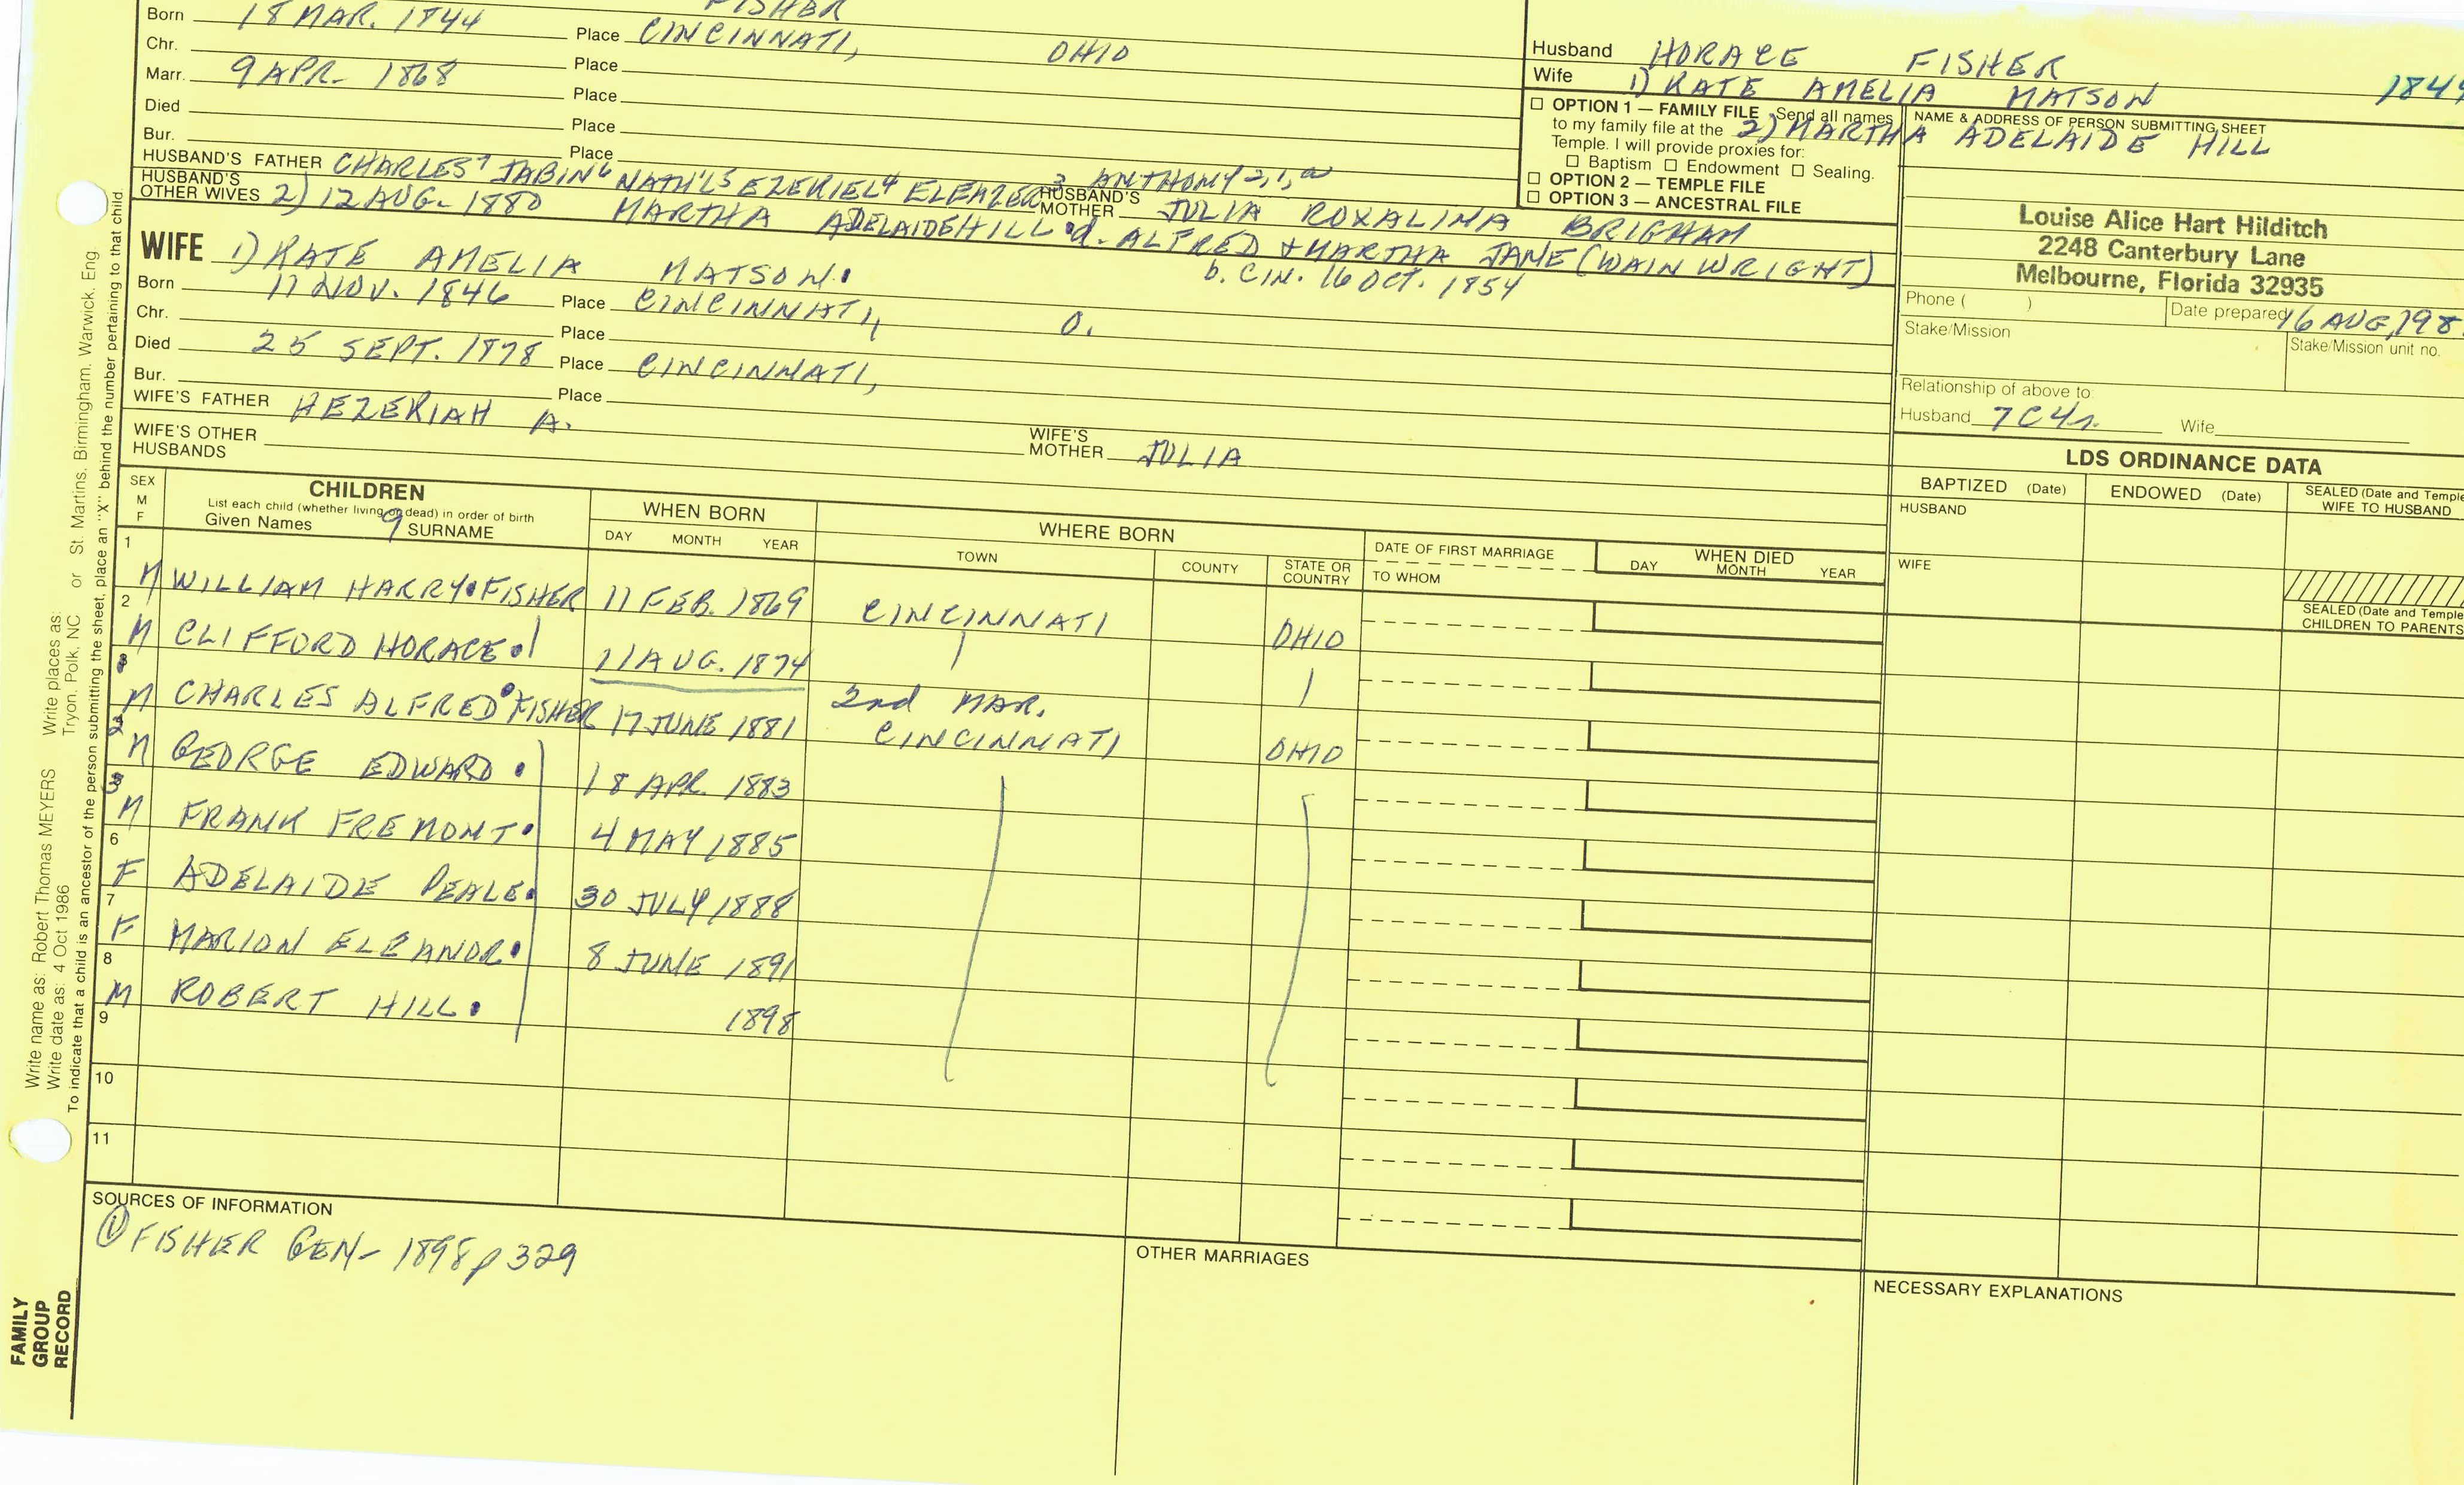 FISHER
Born 18 MAR. 1844 Place CINCINNATI, OHIO
Chr. Place
Marr. 9 APR. 1868 Place
Died Place
Bur. Place
HUSBAND'S FATHER CHARLES7 JABIN6 NATH'L5 EZEKIEL4 ELEAZER3 ANTHONY2,1,a HUSBAND'S MOTHER JULIA ROXALINA BRIGHAM
HUSBAND'S OTHER WIVES 2) 12 AUG. 1880 MARTHA ADELAIDE HILL d. ALFRED + MARTHA JANE (WAINWRIGHT)
b. CIN. 16 OCT. 1854
WIFE 1) KATE AMELIA MATSON
Born 11 NOV. 1846 Place CINCINNATI, O.
Chr. Place
Died 25 SEPT. 1878 Place CINCINNATI,
Bur. Place
WIFE'S FATHER HEZEKIAH A. WIFE'S MOTHER JULIA
WIFE'S OTHER HUSBANDS
Husband HORACE FISHER
Wife 1) KATE AMELIA MATSON
2) MARTHA ADELAIDE HILL
☐ OPTION 1 — FAMILY FILE Send all names
to my family file at the
Temple. I will provide proxies for:
☐ Baptism ☐ Endowment ☐ Sealing.
☐ OPTION 2 — TEMPLE FILE
☐ OPTION 3 — ANCESTRAL FILE
NAME & ADDRESS OF PERSON SUBMITTING SHEET
Louise Alice Hart Hilditch
2248 Canterbury Lane
Melbourne, Florida 32935
Phone ( )
Date prepared 16 AUG, 198
Stake/Mission
Stake/Mission unit no.
Relationship of above to:
Husband 7C4r. Wife
LDS ORDINANCE DATA
BAPTIZED (Date) ENDOWED (Date) SEALED (Date and Temple
WIFE TO HUSBAND
HUSBAND
WIFE
SEALED (Date and Temple
CHILDREN TO PARENTS
SEX
M
F
CHILDREN
List each child (whether living or dead) in order of birth
Given Names 9 SURNAME
WHEN BORN
DAY MONTH YEAR
WHERE BORN
TOWN COUNTY STATE OR COUNTRY
DATE OF FIRST MARRIAGE
TO WHOM
WHEN DIED
DAY MONTH YEAR
1 M WILLIAM HARRY FISHER 11 FEB. 1869 CINCINNATI OHIO
2 M CLIFFORD HORACE 11 AUG. 1874
2nd MAR.
1 M CHARLES ALFRED FISHER 17 JUNE 1881 CINCINNATI OHIO
2 M GEORGE EDWARD 18 APR. 1883
3 M FRANK FREMONT 4 MAY 1885
6 F ADELAIDE PEALE 30 JULY 1888
7 F MARION ELEANOR 8 JUNE 1891
8 M ROBERT HILL 1898
9
10
11
SOURCES OF INFORMATION
① FISHER GEN- 1898 p 329
OTHER MARRIAGES
NECESSARY EXPLANATIONS
FAMILY
GROUP
RECORD
Write name as: Robert Thomas MEYERS
Write date as: 4 Oct 1986
Write places as:
Tryon, Polk, NC or St. Martins, Birmingham, Warwick, Eng.
To indicate that a child is an ancestor of the person submitting the sheet, place an "X" behind the number pertaining to that child.